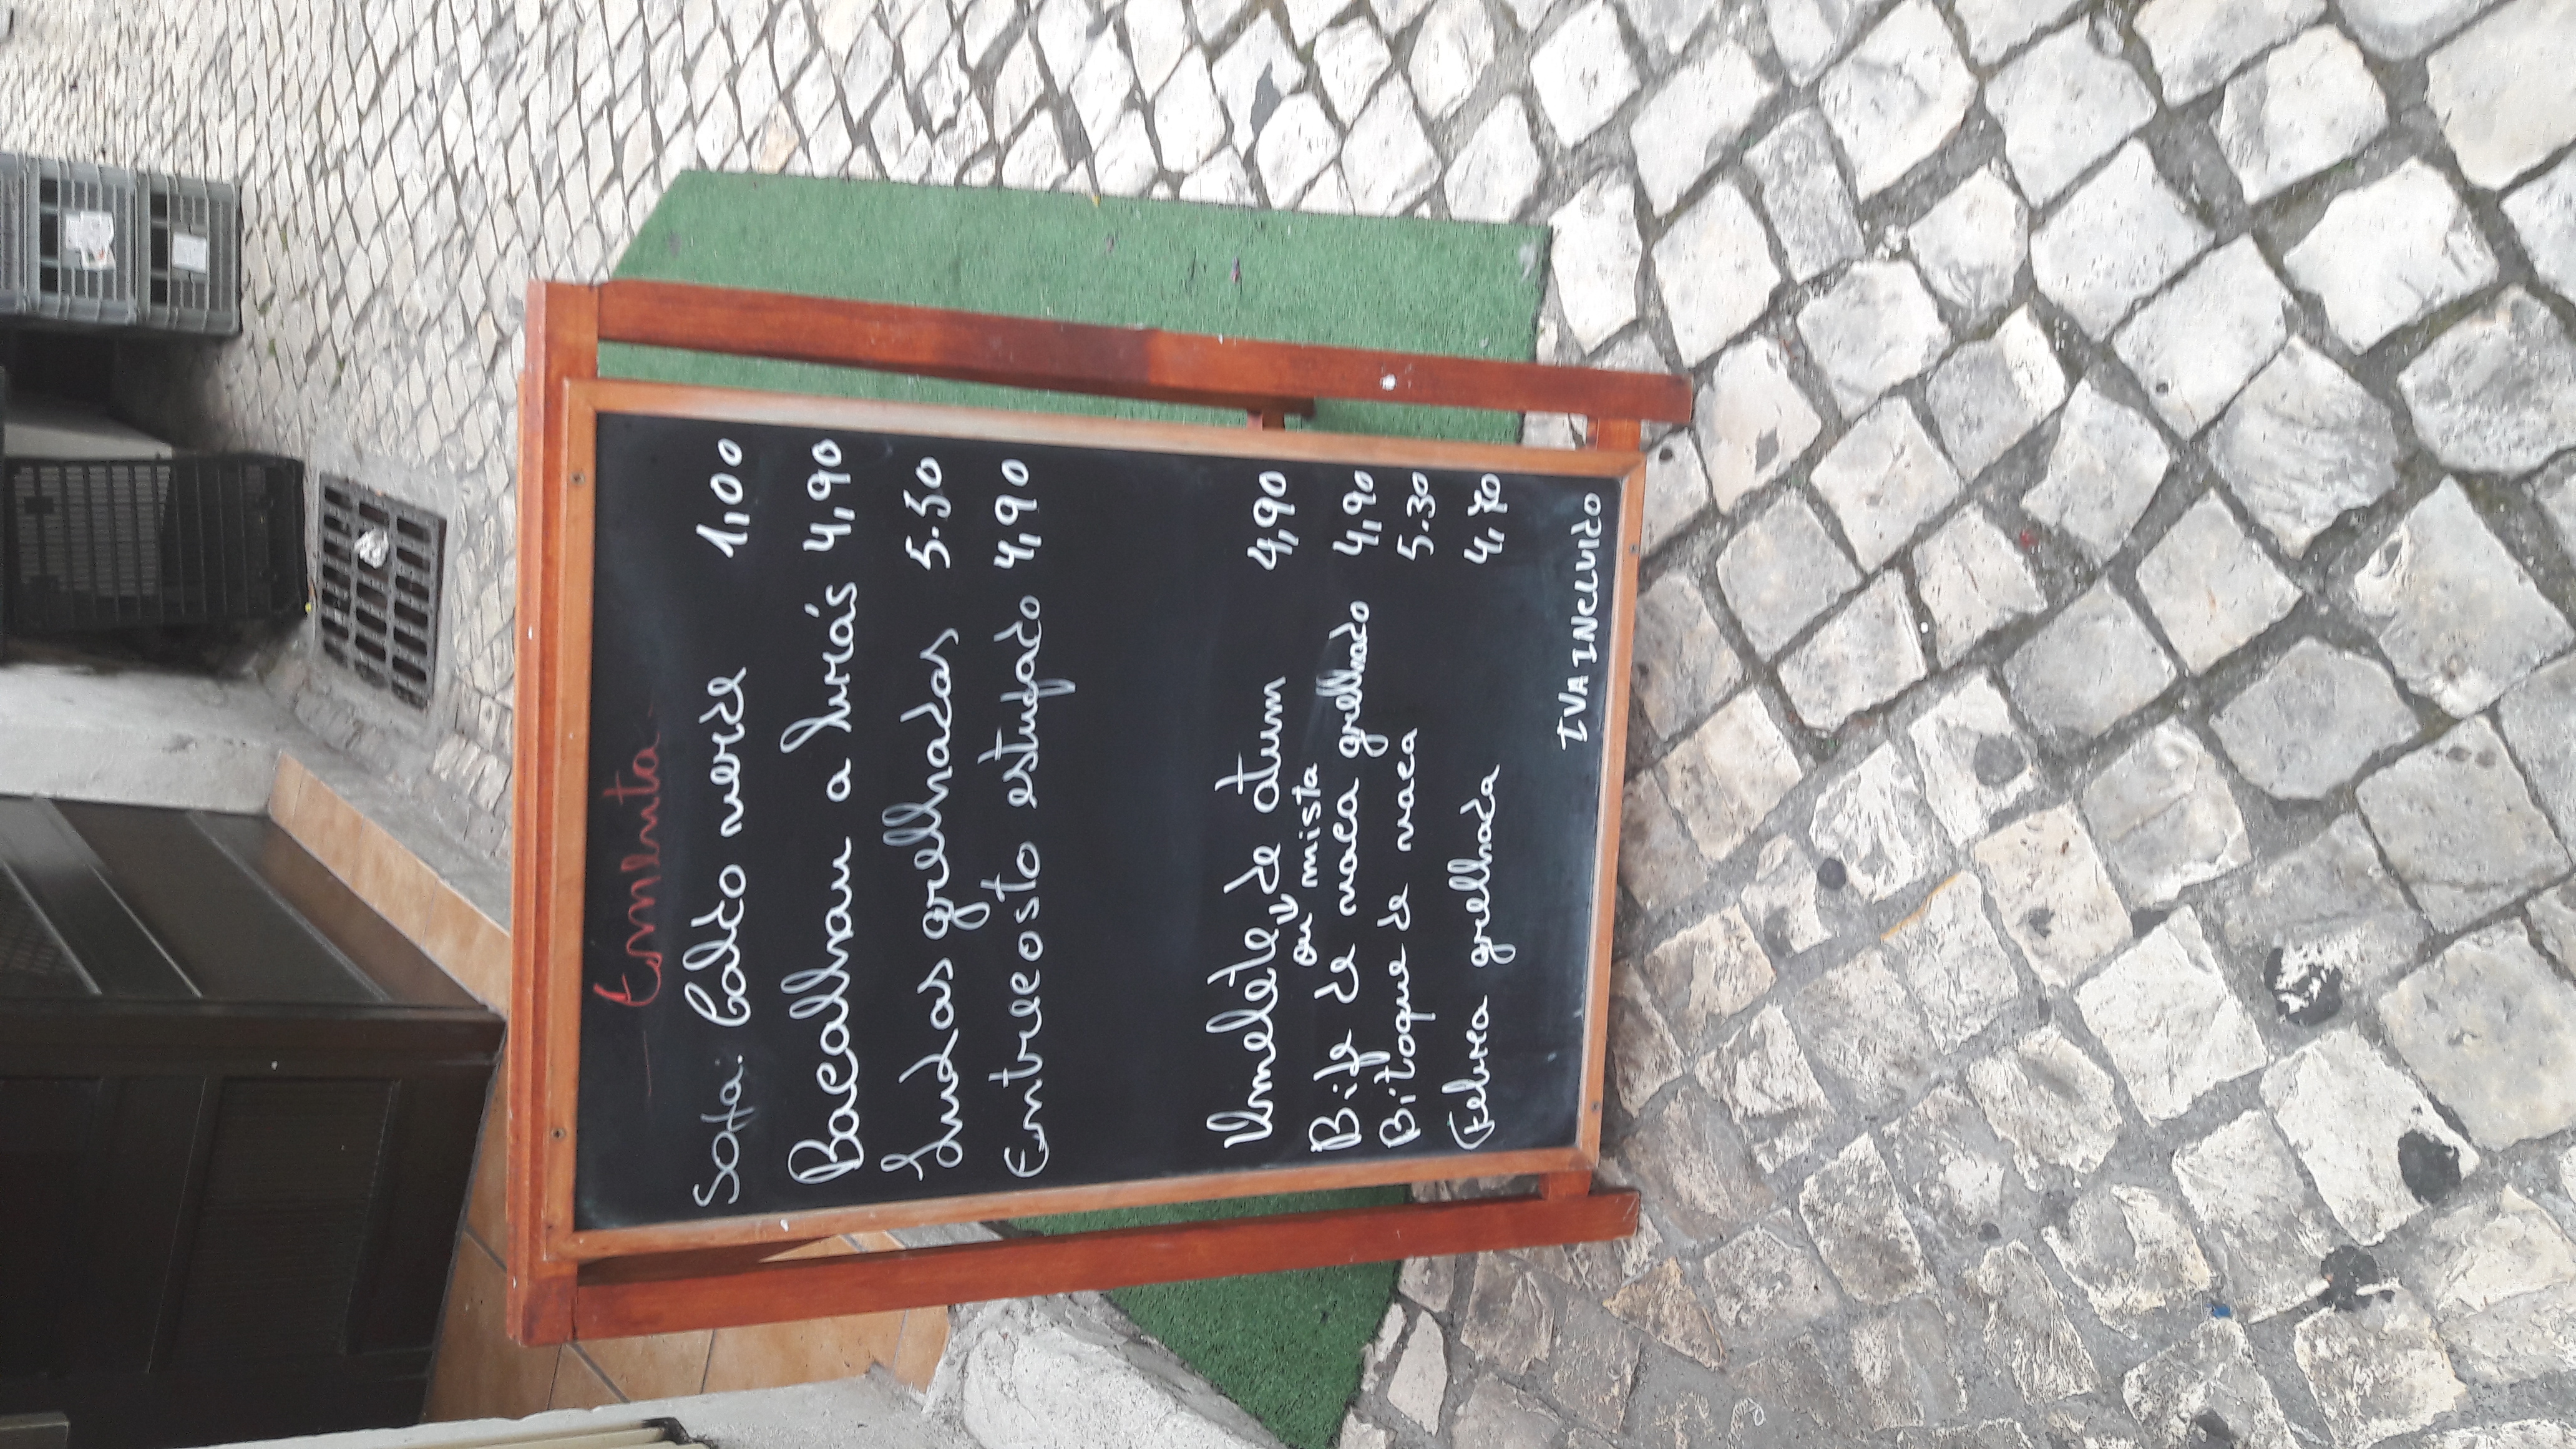 Ementa
Sopa: Caldo verde 1,00
Bacalhau a Brás 4,90
Lulas grelhadas 5.50
Entrecosto estufado 4,90
Omelete de atum 4,90
ou mista
Bife de vaca grelhado 4,90
Bitoque de vaca 5.30
Febra grelhada 4,70
IVA INCLUIDO